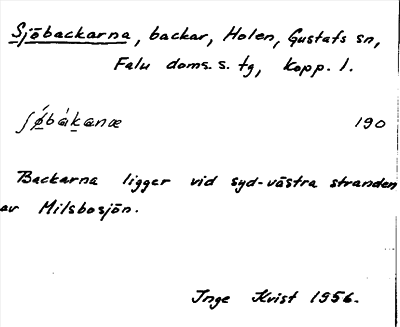 Sjöbackarna, backar, Holen, Gustafs sn,
Falu doms. s. tg, Kopp. l.
ʃø̀bákanæ 190
Backarna ligger vid syd-västra stranden
av Milsbosjön.
Inge Kvist 1956.